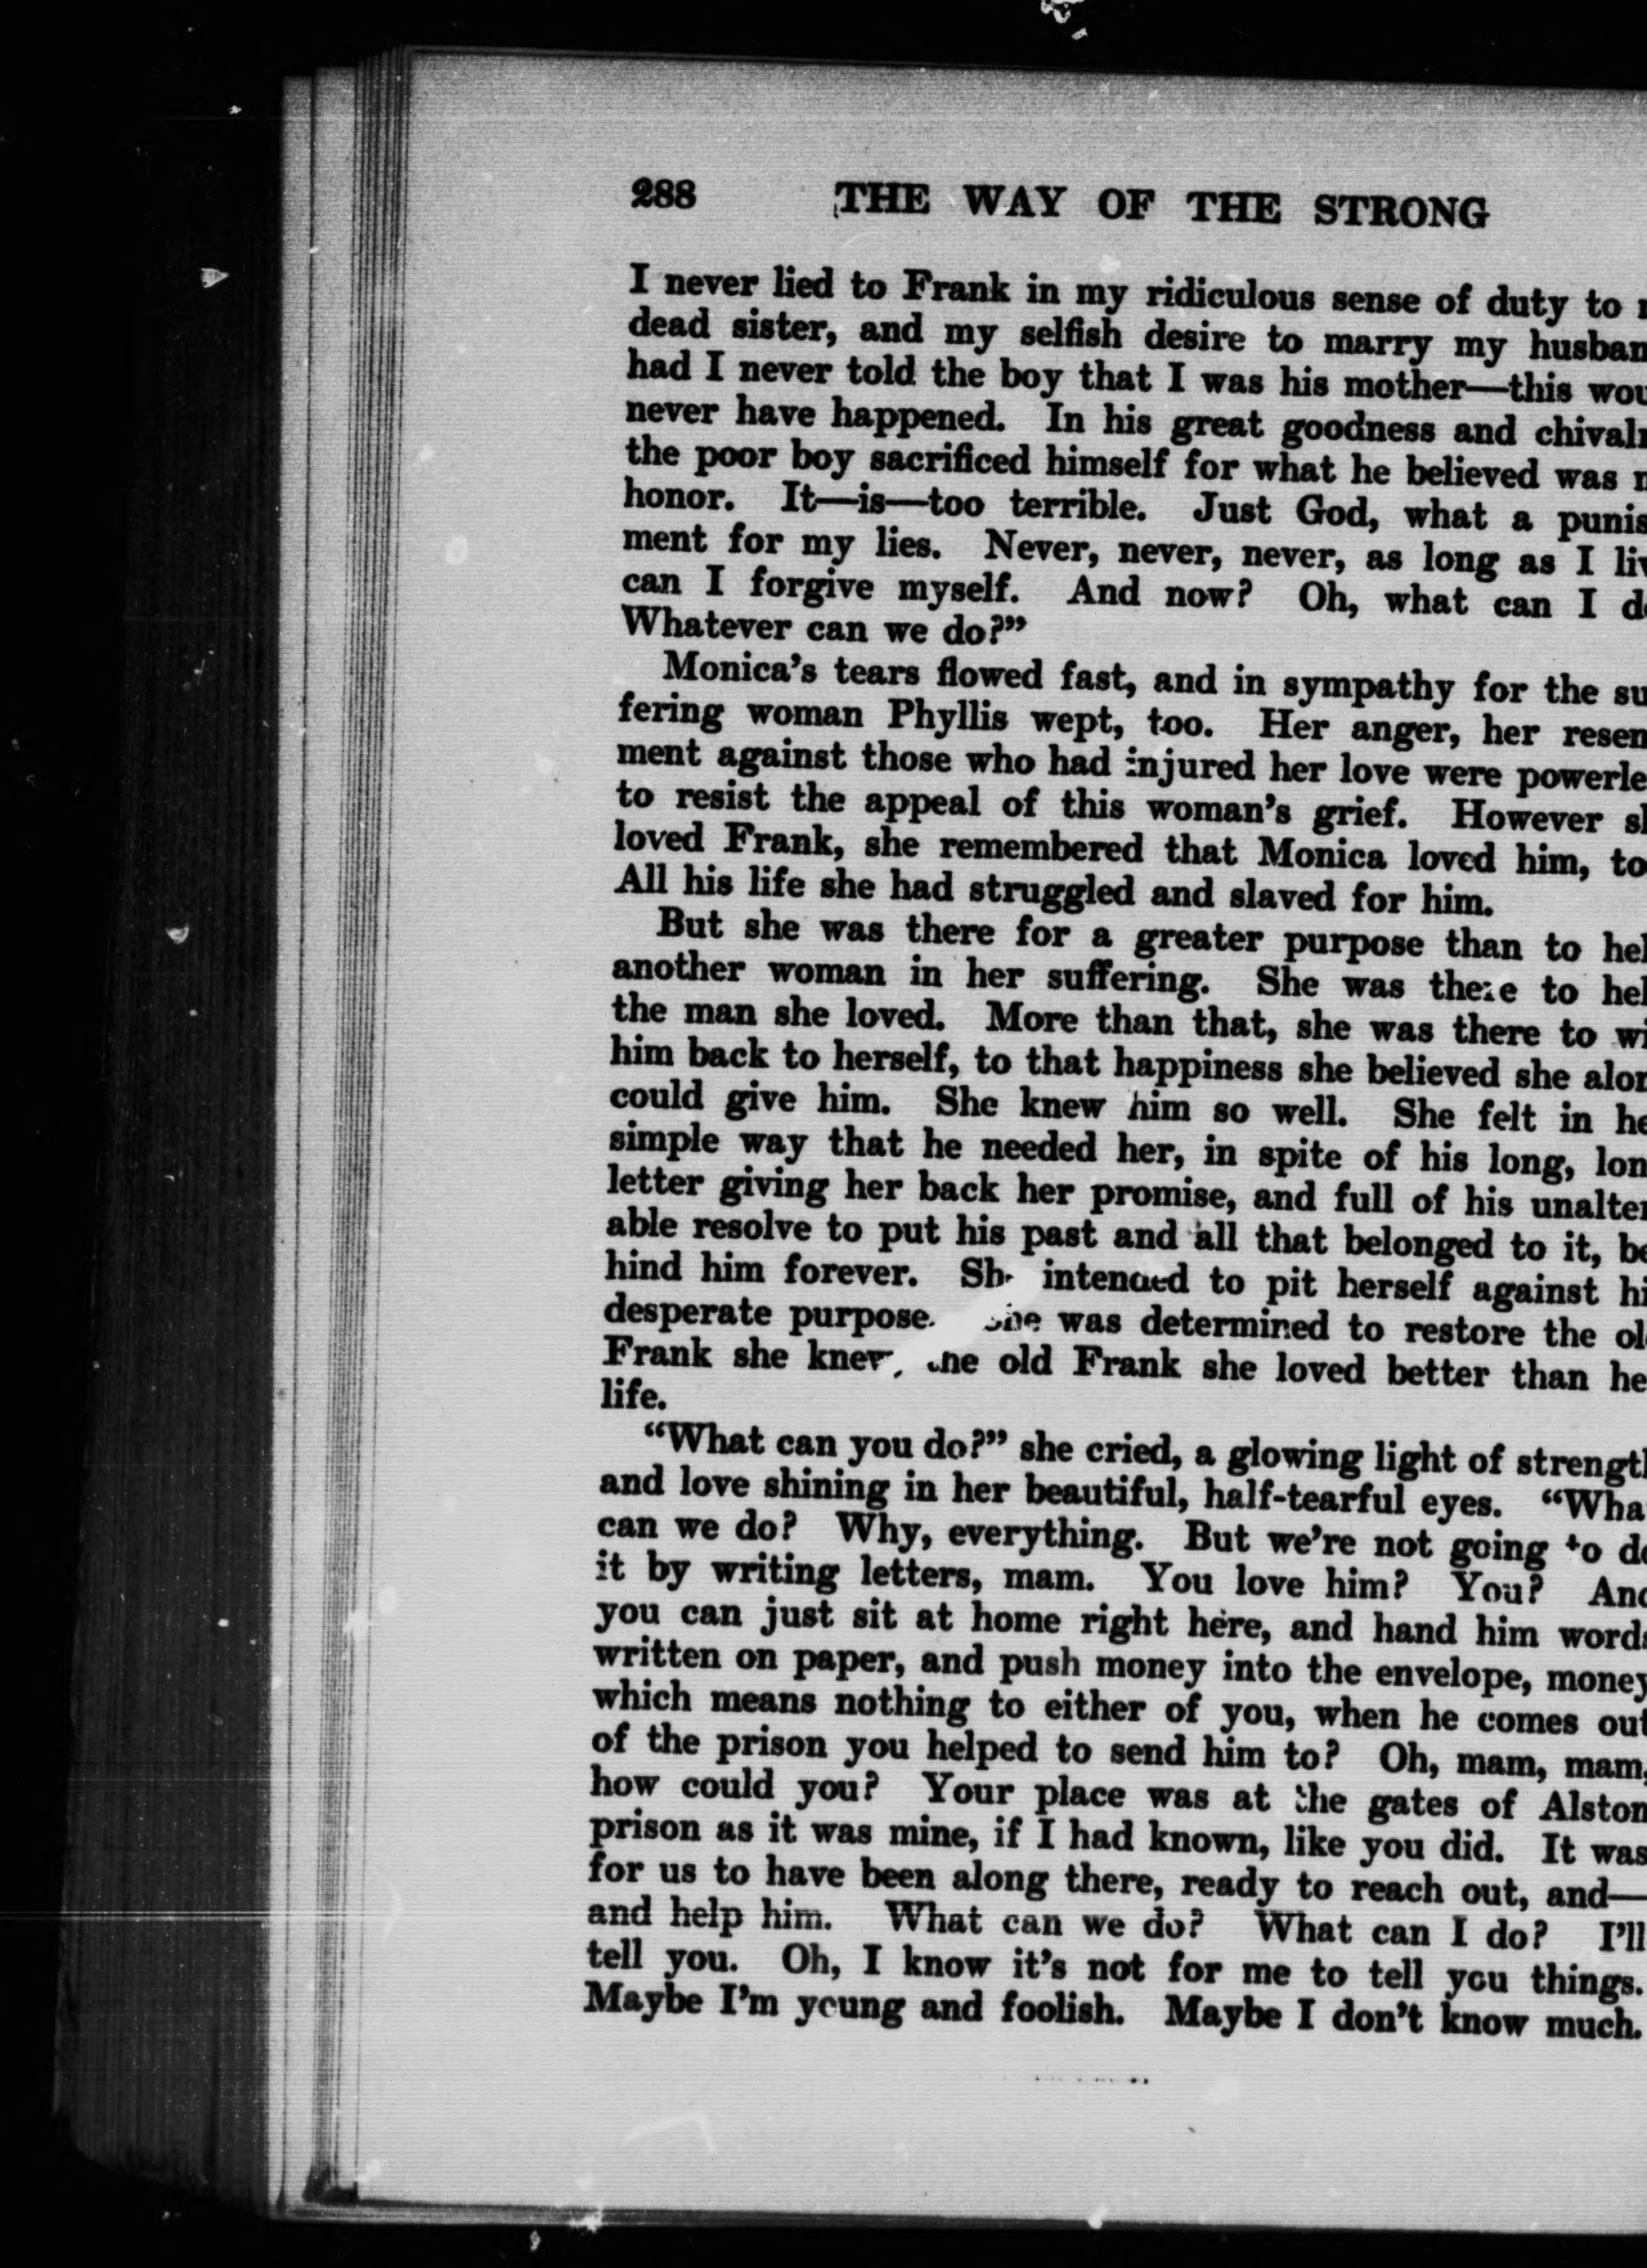 288 THE WAY OF THE STRONG
I never lied to Frank in my ridiculous sense of duty to
dead sister, and my selfish desire to marry my husban
had I never told the boy that I was his mother—this wou
never have happened. In his great goodness and chivalr
the poor boy sacrificed himself for what he believed was
honor. It—is—too terrible. Just God, what a punis
ment for my lies. Never, never, never, as long as I liv
can I forgive myself. And now? Oh, what can I d
Whatever can we do?”
Monica’s tears flowed fast, and in sympathy for the su
fering woman Phyllis wept, too. Her anger, her resen
ment against those who had injured her love were powerle
to resist the appeal of this woman’s grief. However s
loved Frank, she remembered that Monica loved him, to
All his life she had struggled and slaved for him.
But she was there for a greater purpose than to hel
another woman in her suffering. She was there to hel
the man she loved. More than that, she was there to wi
him back to herself, to that happiness she believed she alon
could give him. She knew him so well. She felt in he
simple way that he needed her, in spite of his long, lon
letter giving her back her promise, and full of his unalter
able resolve to put his past and all that belonged to it, be
hind him forever. Sh intended to pit herself against hi
desperate purpose. she was determined to restore the ol
Frank she knew, the old Frank she loved better than he
life.
“What can you do?” she cried, a glowing light of strengt
and love shining in her beautiful, half-tearful eyes. “Wha
can we do? Why, everything. But we’re not going to do
it by writing letters, mam. You love him? You? And
you can just sit at home right here, and hand him words
written on paper, and push money into the envelope, money
which means nothing to either of you, when he comes out
of the prison you helped to send him to? Oh, mam, mam,
how could you? Your place was at the gates of Alston
prison as it was mine, if I had known, like you did. It was
for us to have been along there, ready to reach out, and—
and help him. What can we do? What can I do? I’ll
tell you. Oh, I know it’s not for me to tell you things.
Maybe I’m young and foolish. Maybe I don’t know much.